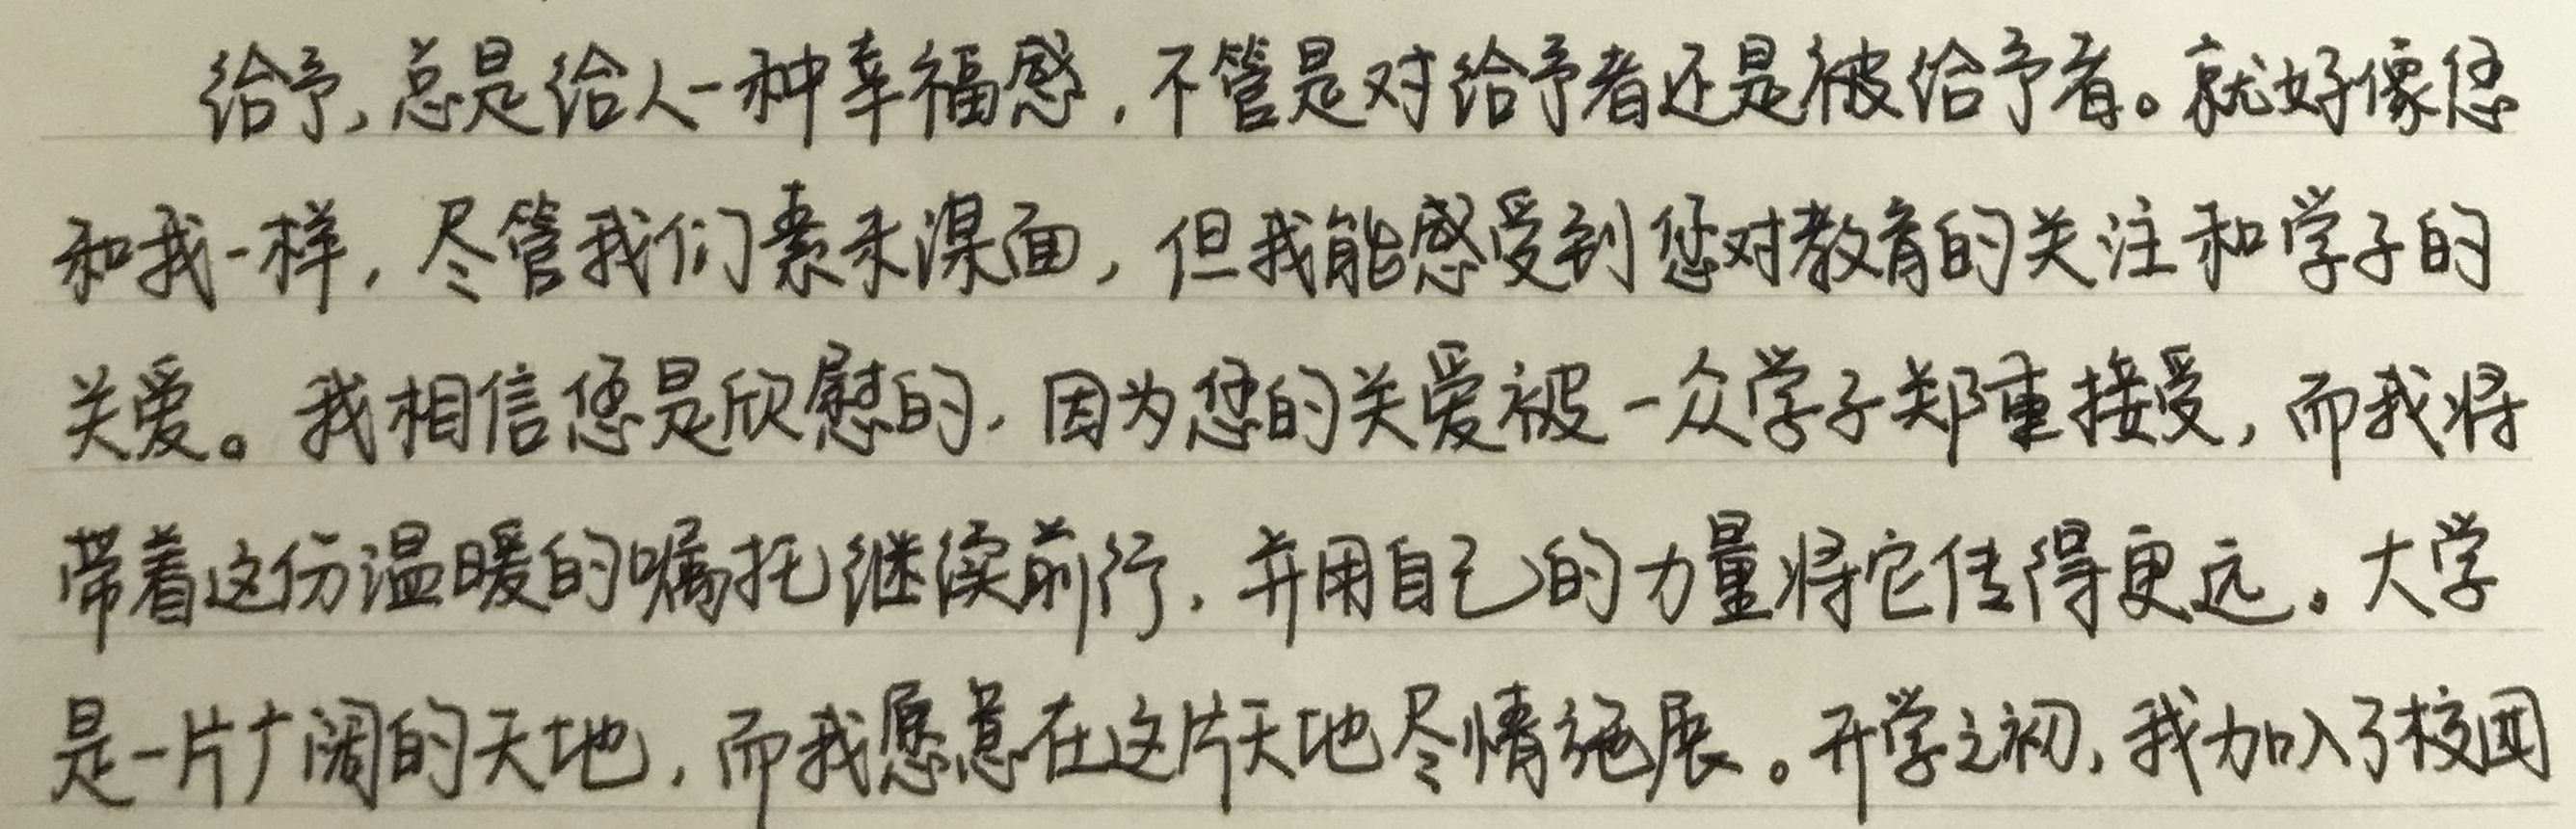 给予,总是给人一种幸福感,不管是对给予者还是被给予者。就好像您
和我一样,尽管我们素未谋面,但我能感受到您对教育的关注和学子的
关爱。我相信您是欣慰的,因为您的关爱被一众学子郑重接受,而我将
带着这份温暖的嘱托继续前行,并用自己的力量将它传得更远。大学
是一片广阔的天地,而我愿意在这片天地尽情施展。开学之初,我加入了校团